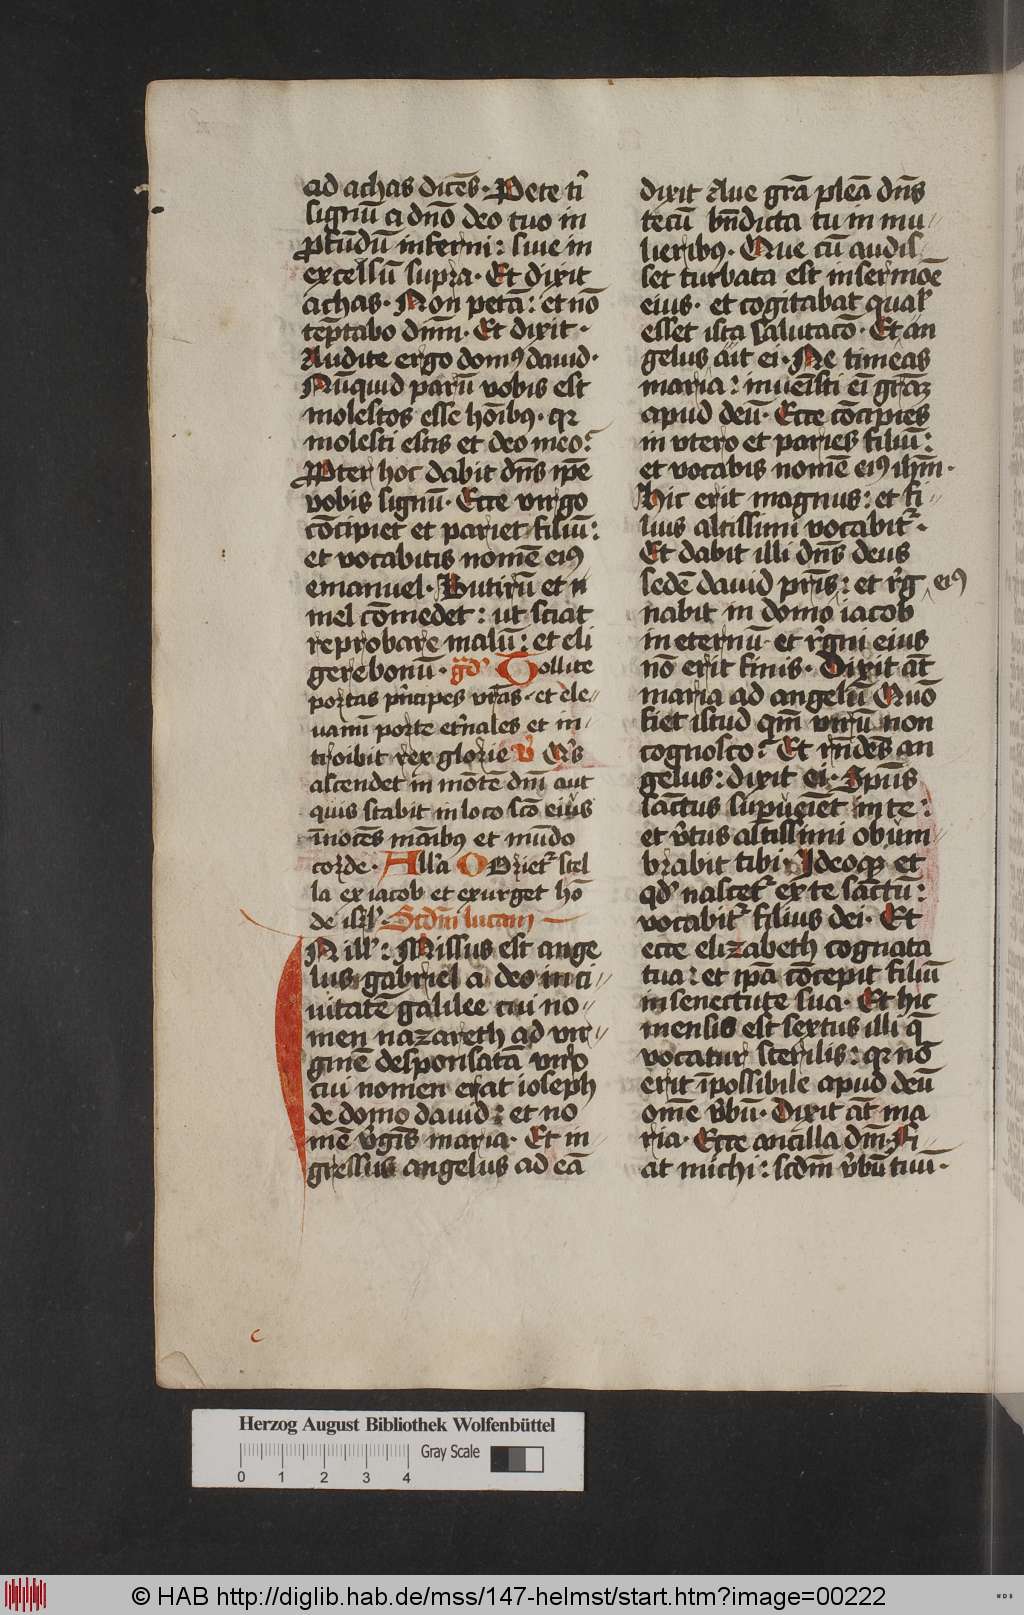 ad achas dicēs · Pete tͥ
signū a dn̄o deo tuo in
ꝓfūdū inferni : siue in
excelsū supra · Et dixit
achas · Non petā : et nō
tēptabo dn̄m · Et dixit ·
Audite ergo domꝰ dauid ·
Nūquid parū vobis est
molestos esse hōibꝰ · qꝛ
molesti estis et deo meo ?
Ꝓpter hoc dabit dn̄s ip̄e
vobis signū · Ecce virgo
cōcipiet et pariet filiū :
et vocabitis nomē eiꝰ
emanuel · Butirū et
mel cōmedet : ut sciat
reprobare malū : et eli
gere bonū · gͣd' Tollite
portas pͥncipes vr̄as · et ele〃
uamī porte et'nales et in〃
troibit rex glorie v̓ Qͥs
ascendet in mōtē dn̄i aut
quis stabit in loco sc̄o eius
īnocēs manibꝰ et mūdo
corde · All'a Orietꝛ stel
la ex iacob et exurget hō
de isrl' · Scd̄m lucam
N ill' : Missus est ange
lus gabriel a deo in ci〃
uitatē galilee cui no〃
men nazareth ad vir〃
ginē desponsatā viro
cui nomen erat ioseph
de domo dauid : et no
mē v̓gīs maria · Et in〃
gressus angelus ad eā
dixit Aue gr̄a plēa dn̄s
tecū bn̄dicta tu in mu〃
lieribꝰ · Que cū audis〃
set turbata est in sermōe
eius · et cogitabat qual'
esset ista salutacō · Et an
gelus ait ei · Ne timeas
maria : inuēisti eī gr̄aꝫ
apud deū · Ecce cōcipies
in vtero et paries filiū :
et vocabis nomē eiꝰ ih̄m ·
Hic erit magnus : et fi〃
lius altissimi vocabitꝛ ·
Et dabit illi dn̄s deus
sedē dauid pr̄is : et rͤg eiꝰ
nabit in domo iacob
in eternū et rͤgni eius
nō erit finis · Dixit āt
maria ad angelū Quō
fiet istud qm̄ virū non
cognosco ? Et rn̄dēs an
gelus : dixit ei · Spūs
sāctus supueīet in te :
et v̓tus altissimi obūm〃
brabit tibi · Ideoqꝫ et
qd' nascetꝛ ex te sāctū :
vocabitꝛ filius dei · Et
ecce elizabeth cognata
tua : et ip̄a cōcepit filiū
in senectute sua · Et hic
mensis est sextus illi q̄
vocatur sterilis : qꝛ nō
erit īpossibile apud deū
om̄e v̓bū · Dixit āt ma
ria · Ecce ancilla dn̄i · Fi〃
at michi : scd̄m v̓bū tuū ·
c
Herzog August Bibliothek Wolfenbüttel
Gray Scale
0 1 2 3 4
© HAB http://diglib.hab.de/mss/147-helmst/start.htm?image=00222